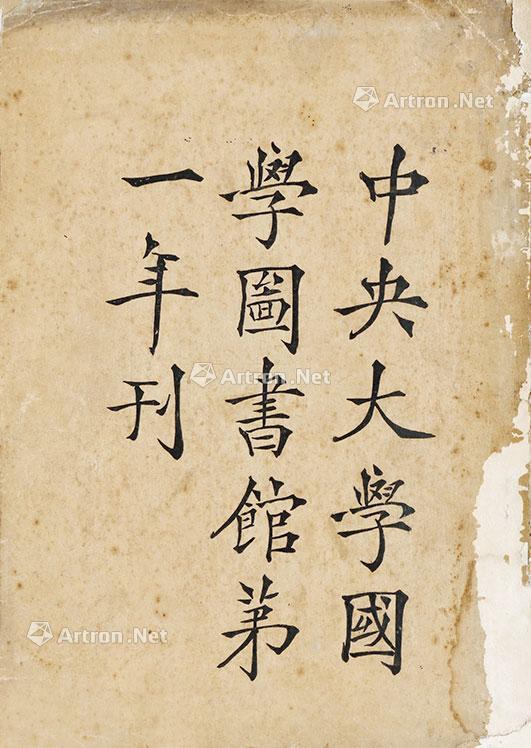 中央大學國
學圖書館第
一年刊
Artron.Net
Artron.Net
Artron.Net